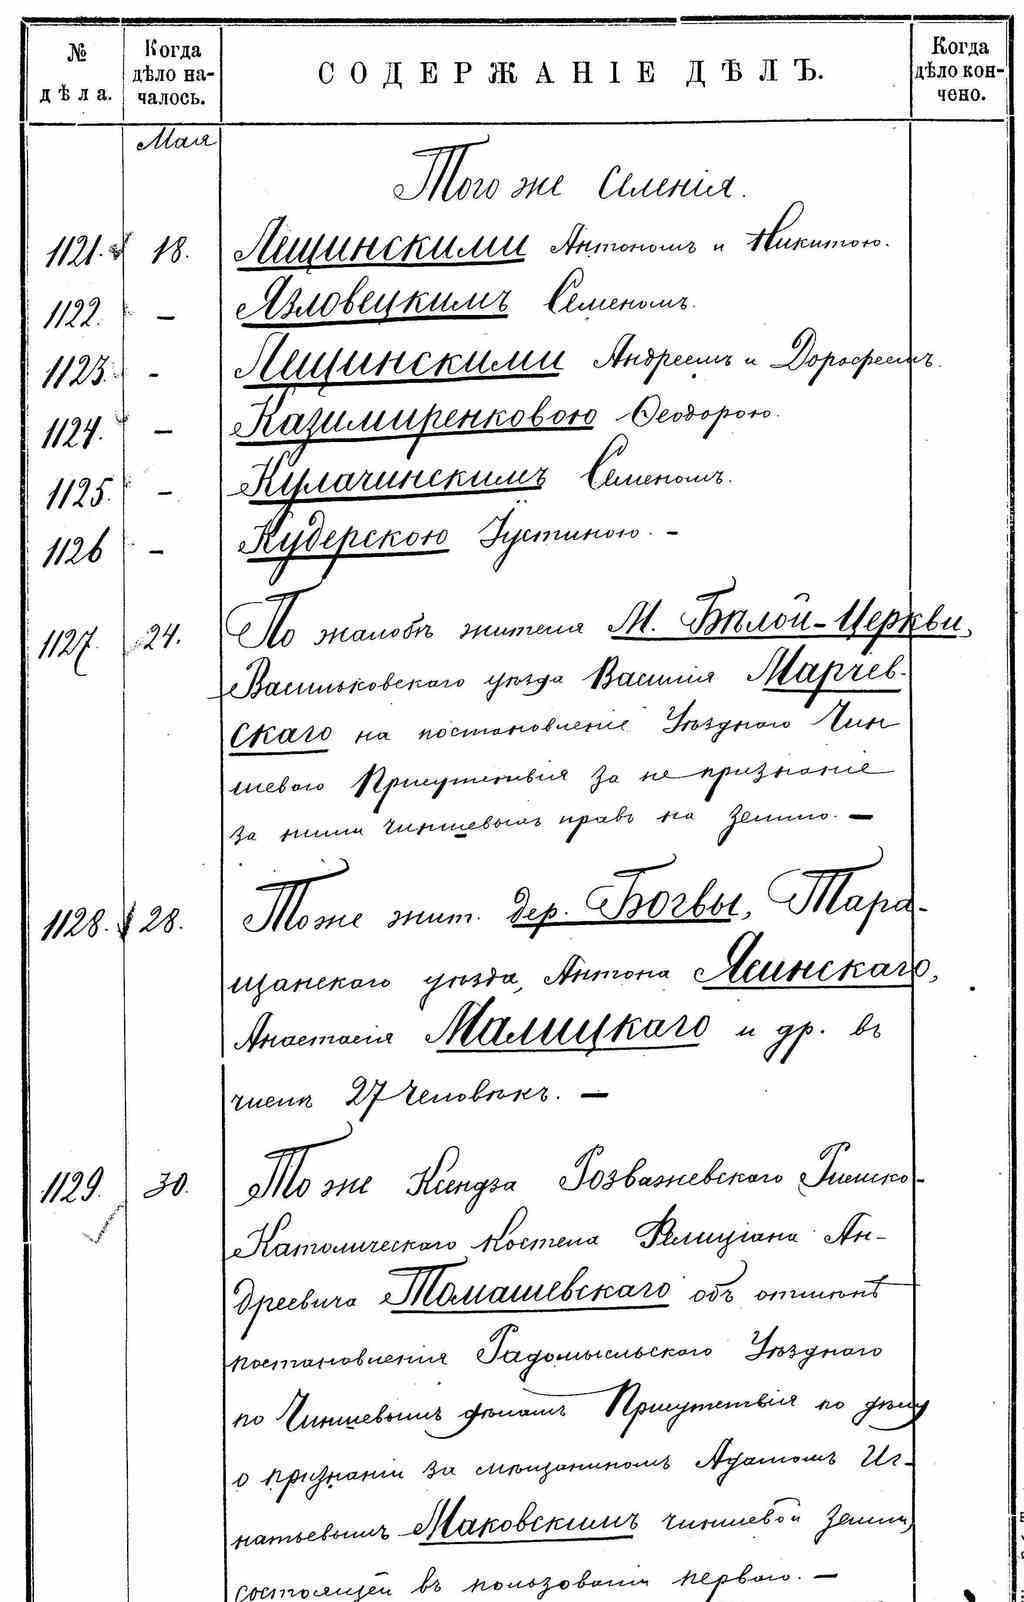 № дѣла.
Когда дѣло на-
чалось.
СОДЕРЖАНІЕ ДѢЛЪ.
Когда дѣло кон-
чено.
Мая
Того же Селенія.
1121. 18. Лещинскими Антономъ и Никитою.
1122. – Язловецкимъ Семеномъ.
1123. – Лещинскими Андреемъ и Дорофеемъ.
1124. – Казимиренковою Ѳеодорою.
1125. – Кулачинскимъ Семеномъ.
1126 – Кудерскою Іустиною. –
1127. 24. По жалобѣ жителя М. Бѣлой-Церкви,
Васильковскаго уѣзда Василія Марчев-
скаго на постановленіе Уѣзднаго Чин
шеваго Присутствія за не признаніе
за ними чиншевыхъ правъ на землю. –
1128. 28. Тоже жит. дер. Богвы, Тара-
щанскаго уѣзда, Антона Ясинскаго,
Анастасія Малицкаго и др. въ
числѣ 27 человѣкъ. –
1129. 30. Тоже Ксендза Розважевскаго Римско-
Католическаго Костела Фелиціана Ан-
дреевича Томашевскаго объ отмѣнѣ
постановленія Радомысльскаго Уѣзднаго
по Чиншевымъ дѣламъ Присутствія по дѣлу
о признаніи за мѣщаниномъ Адамомъ Иг-
натьевымъ Маковскимъ чиншевой земли,
состоящей въ пользованіи перваго. –